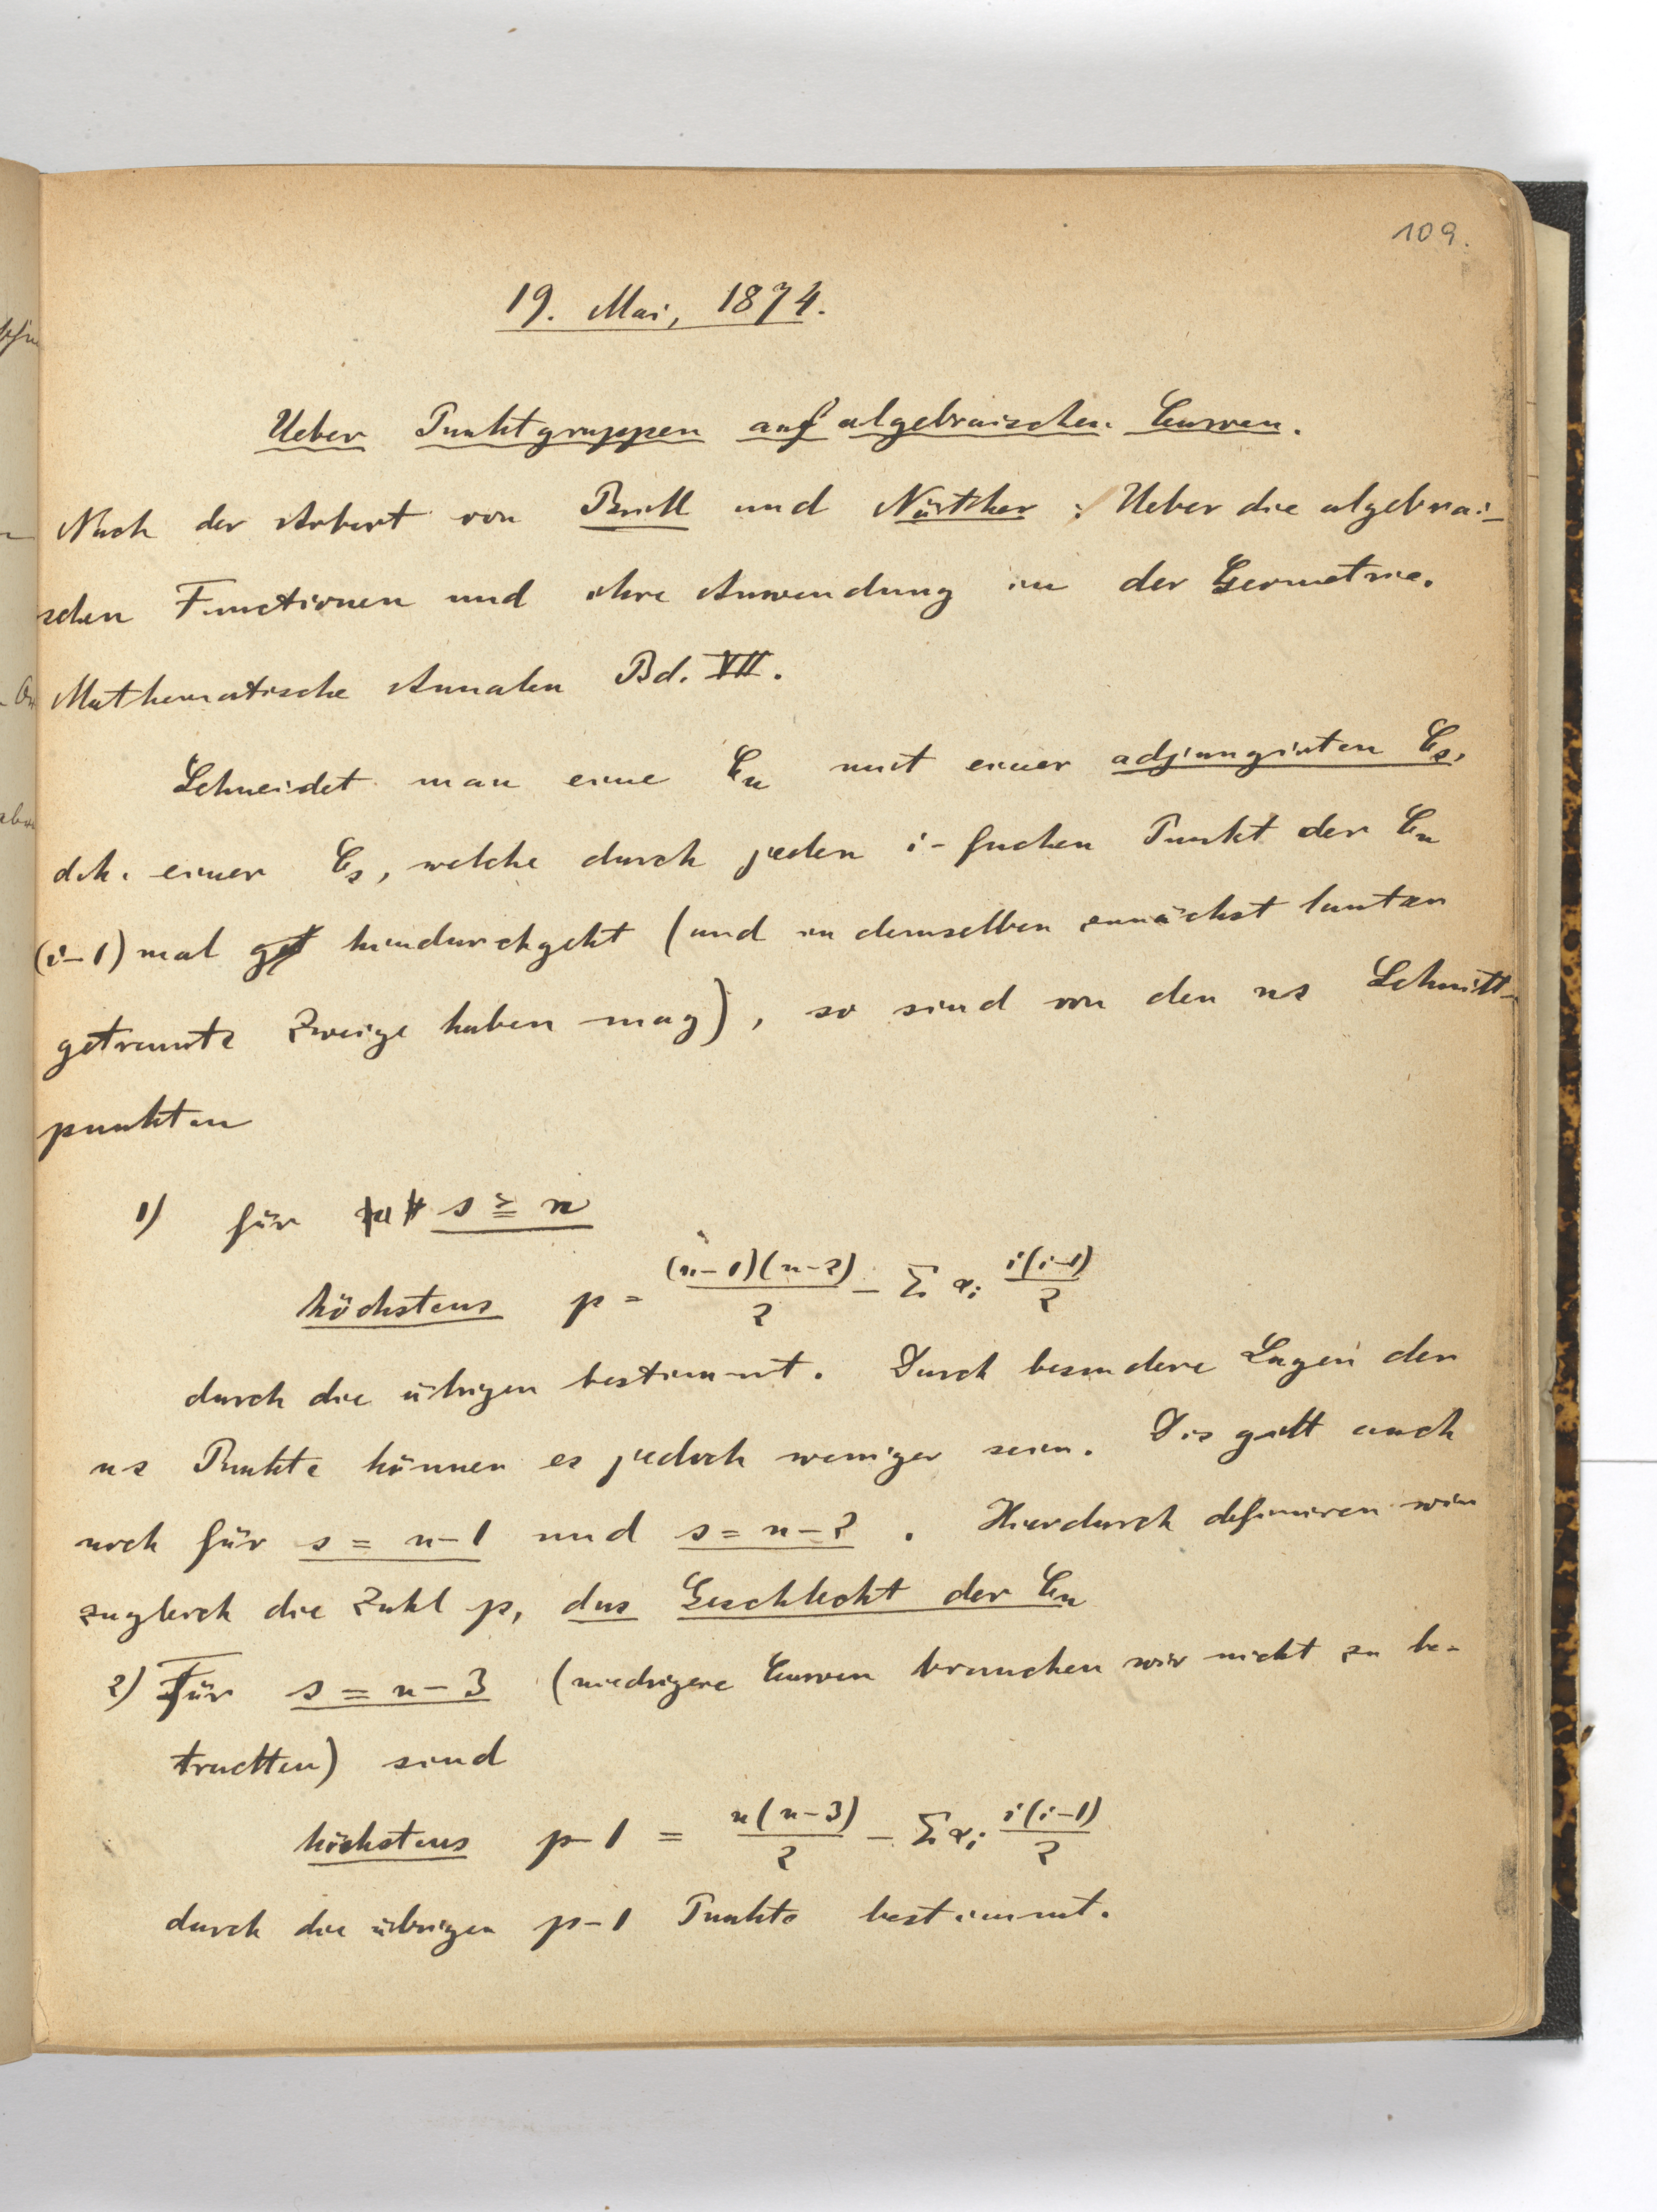 109.
19. Mai, 1874.
Ueber Punktgruppen auf algebraischen Curven.
Nach der Arbeit von Brill und Nöther: Ueber die algebrai-
schen Functionen und ihre Anwendung in der Geometrie.
Mathematische Annalen Bd. VII.
Schneidet man eine Cₙ mit einer adjungirten Cₛ,
d.h. einer Cₛ, welche durch jeden i-fachen Punkt der Cₙ
(i-1) mal hindurchgeht (und in demselben zunächst lauter
getrennte Zweige haben mag), so sind von den ns Schnitt-
punkten
1) für s ≧ n
höchstens p = (n-1)(n-2)/2 - Σ αᵢ i(i-1)/2
durch die übrigen bestimmt. Durch besondere Lagen der
ns Punkte können es jedoch weniger sein. Dis gilt auch
noch für s = n-1 und s = n-2. Hierdurch definiren wir
zugleich die Zahl p, das Geschlecht der Cₙ
2) Für s = n-3 (niedrigere Curven brauchen wir nicht zu be-
trachten) sind
höchstens p-1 = n(n-3)/2 - Σ αᵢ i(i-1)/2
durch die übrigen p-1 Punkte bestimmt.